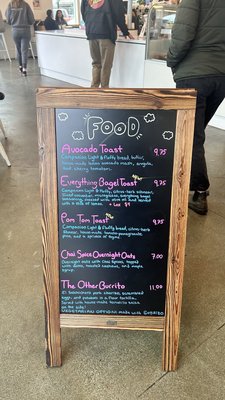 FOOD
Avocado Toast 9.75
Companion Light & Fluffy bread, butter,
house made lemon avocado mash, arugula,
and cherry tomatoes.
Everything Bagel Toast 9.75
Companion Light & Fluffy, citrus-herb
cucumber, microgreens, everything bagel
seasoning, drizzled with olive oil and served
with a slice of lemon.
Pom Tom Toast 9.75
Companion Light & Fluffy, citrus-herb
house-made tomato-pomegranate
jam, and a sprinkle of thyme.
Chai Spice Overnight Oats 7.00
Overnight oats with chai spices, topped
with toasted cashews, and maple
syrup.
The Other Burrito 11.00
chorizo, scrambled
eggs, and potatoes in a flour tortilla.
Served with house made tomatillo salsa
on the side.
VEGETARIAN OPTION MADE WITH SOYRIZO